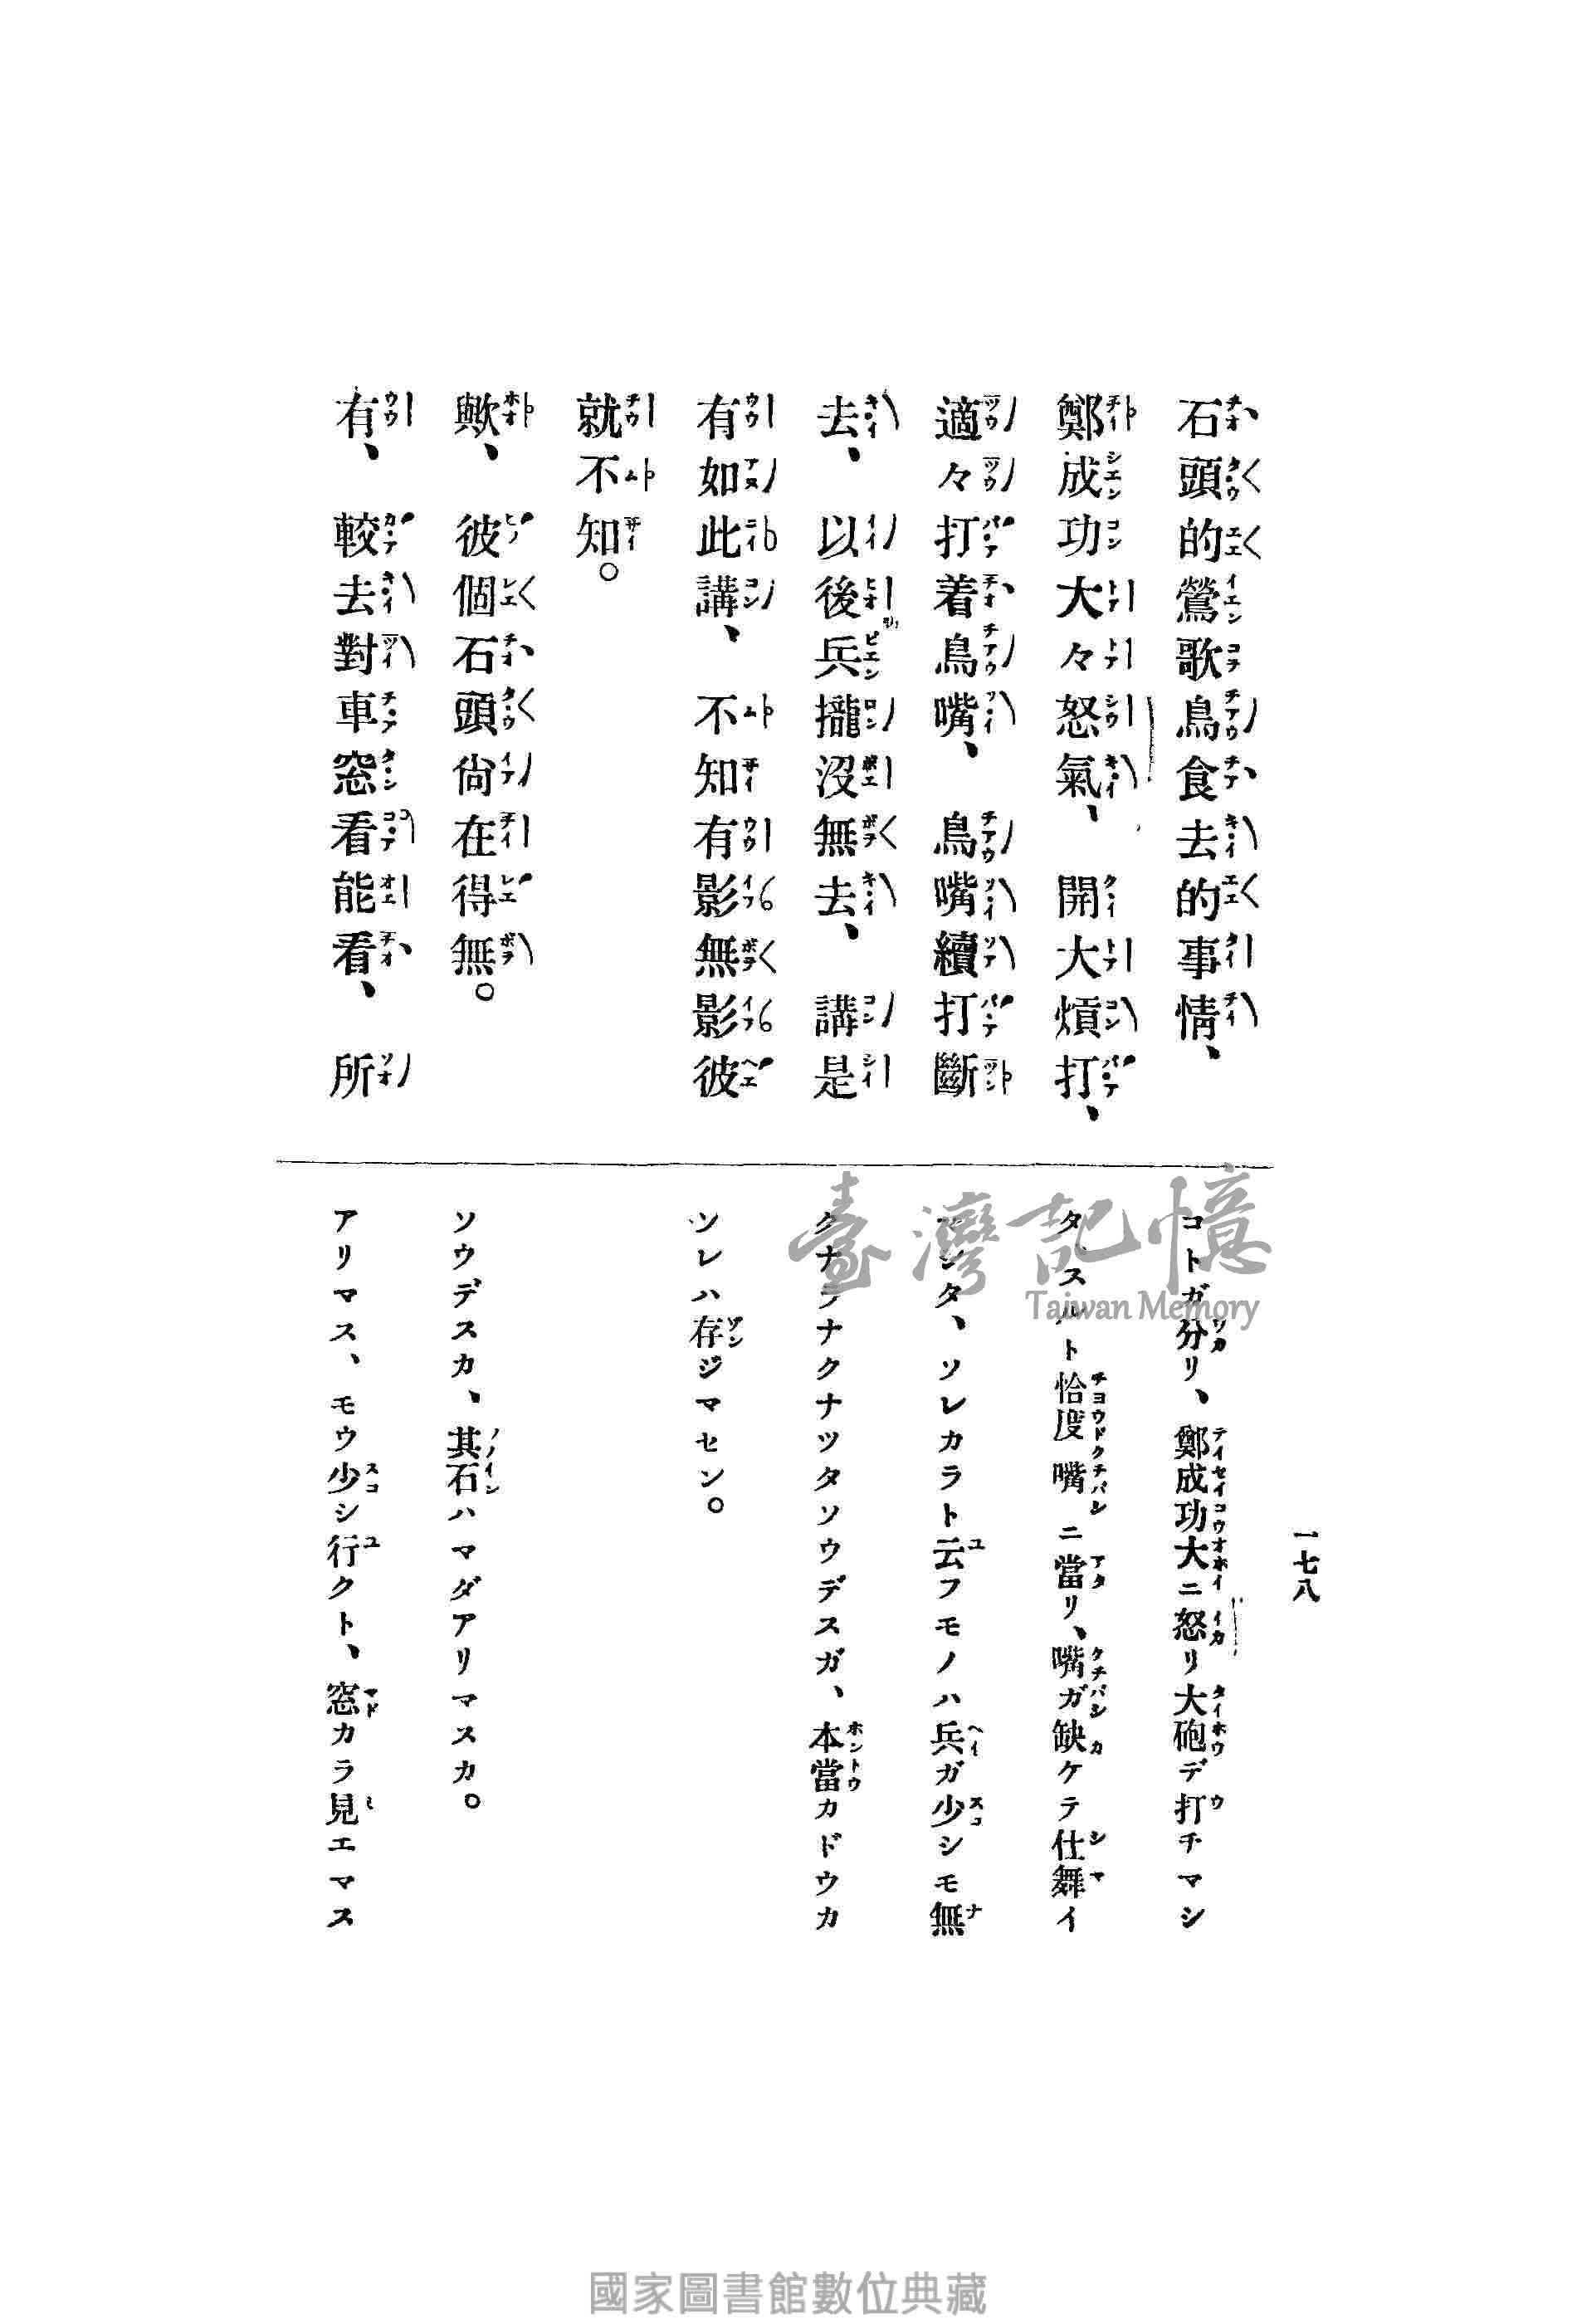 一七八
石頭的鶯歌鳥食去的事情、
鄭成功大々怒氣、開大熕打、
適々打着鳥嘴、鳥嘴續打斷
去、以後兵攏沒無去、講是
有如此講、不知有影無影彼
就不知。
歟、彼個石頭尙在得無。
有、較去對車窓看能看、所
コトガ分リ、鄭成功大ニ怒リ大砲デ打チマシ
タ、スルト恰度嘴ニ當リ、嘴ガ缺ケテ仕舞イ
マシタ、ソレカラト云フモノハ兵ガ少シモ無
クナラナクナツタソウデスガ、本當カドウカ
ソレハ存ジマセン。
ソウデスカ、其石ハマダアリマスカ。
アリマス、モウ少シ行クト、窓カラ見エマス
臺灣記憶
Taiwan Memory
國家圖書館數位典藏